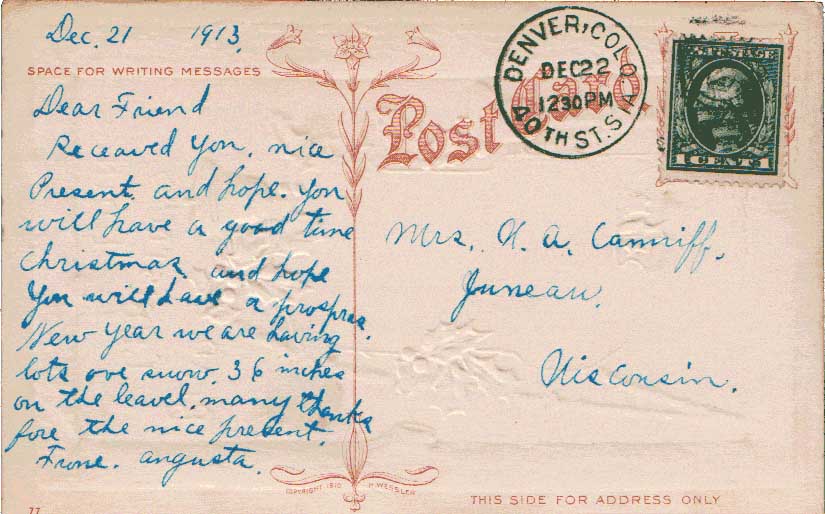 Dec. 21 1913.
SPACE FOR WRITING MESSAGES
Dear Friend
Receaved You, nice
Present. and hope. You
will have a good time
Christmas. and hope
You will have a prospras.
New Year we are having
lots ove snow. 36 inches
on the leavel. many thanks
fore the nice present.
Frone. angusta.
COPYRIGHT 1910 H. WESSLER
77
Post Card.
DENVER, COLO.
DEC 22
12 30 PM
40TH ST. STA.
U.S. POSTAGE
1 CENT 1
Mrs. W. A.
Juneau.
Wisconsin.
THIS SIDE FOR ADDRESS ONLY